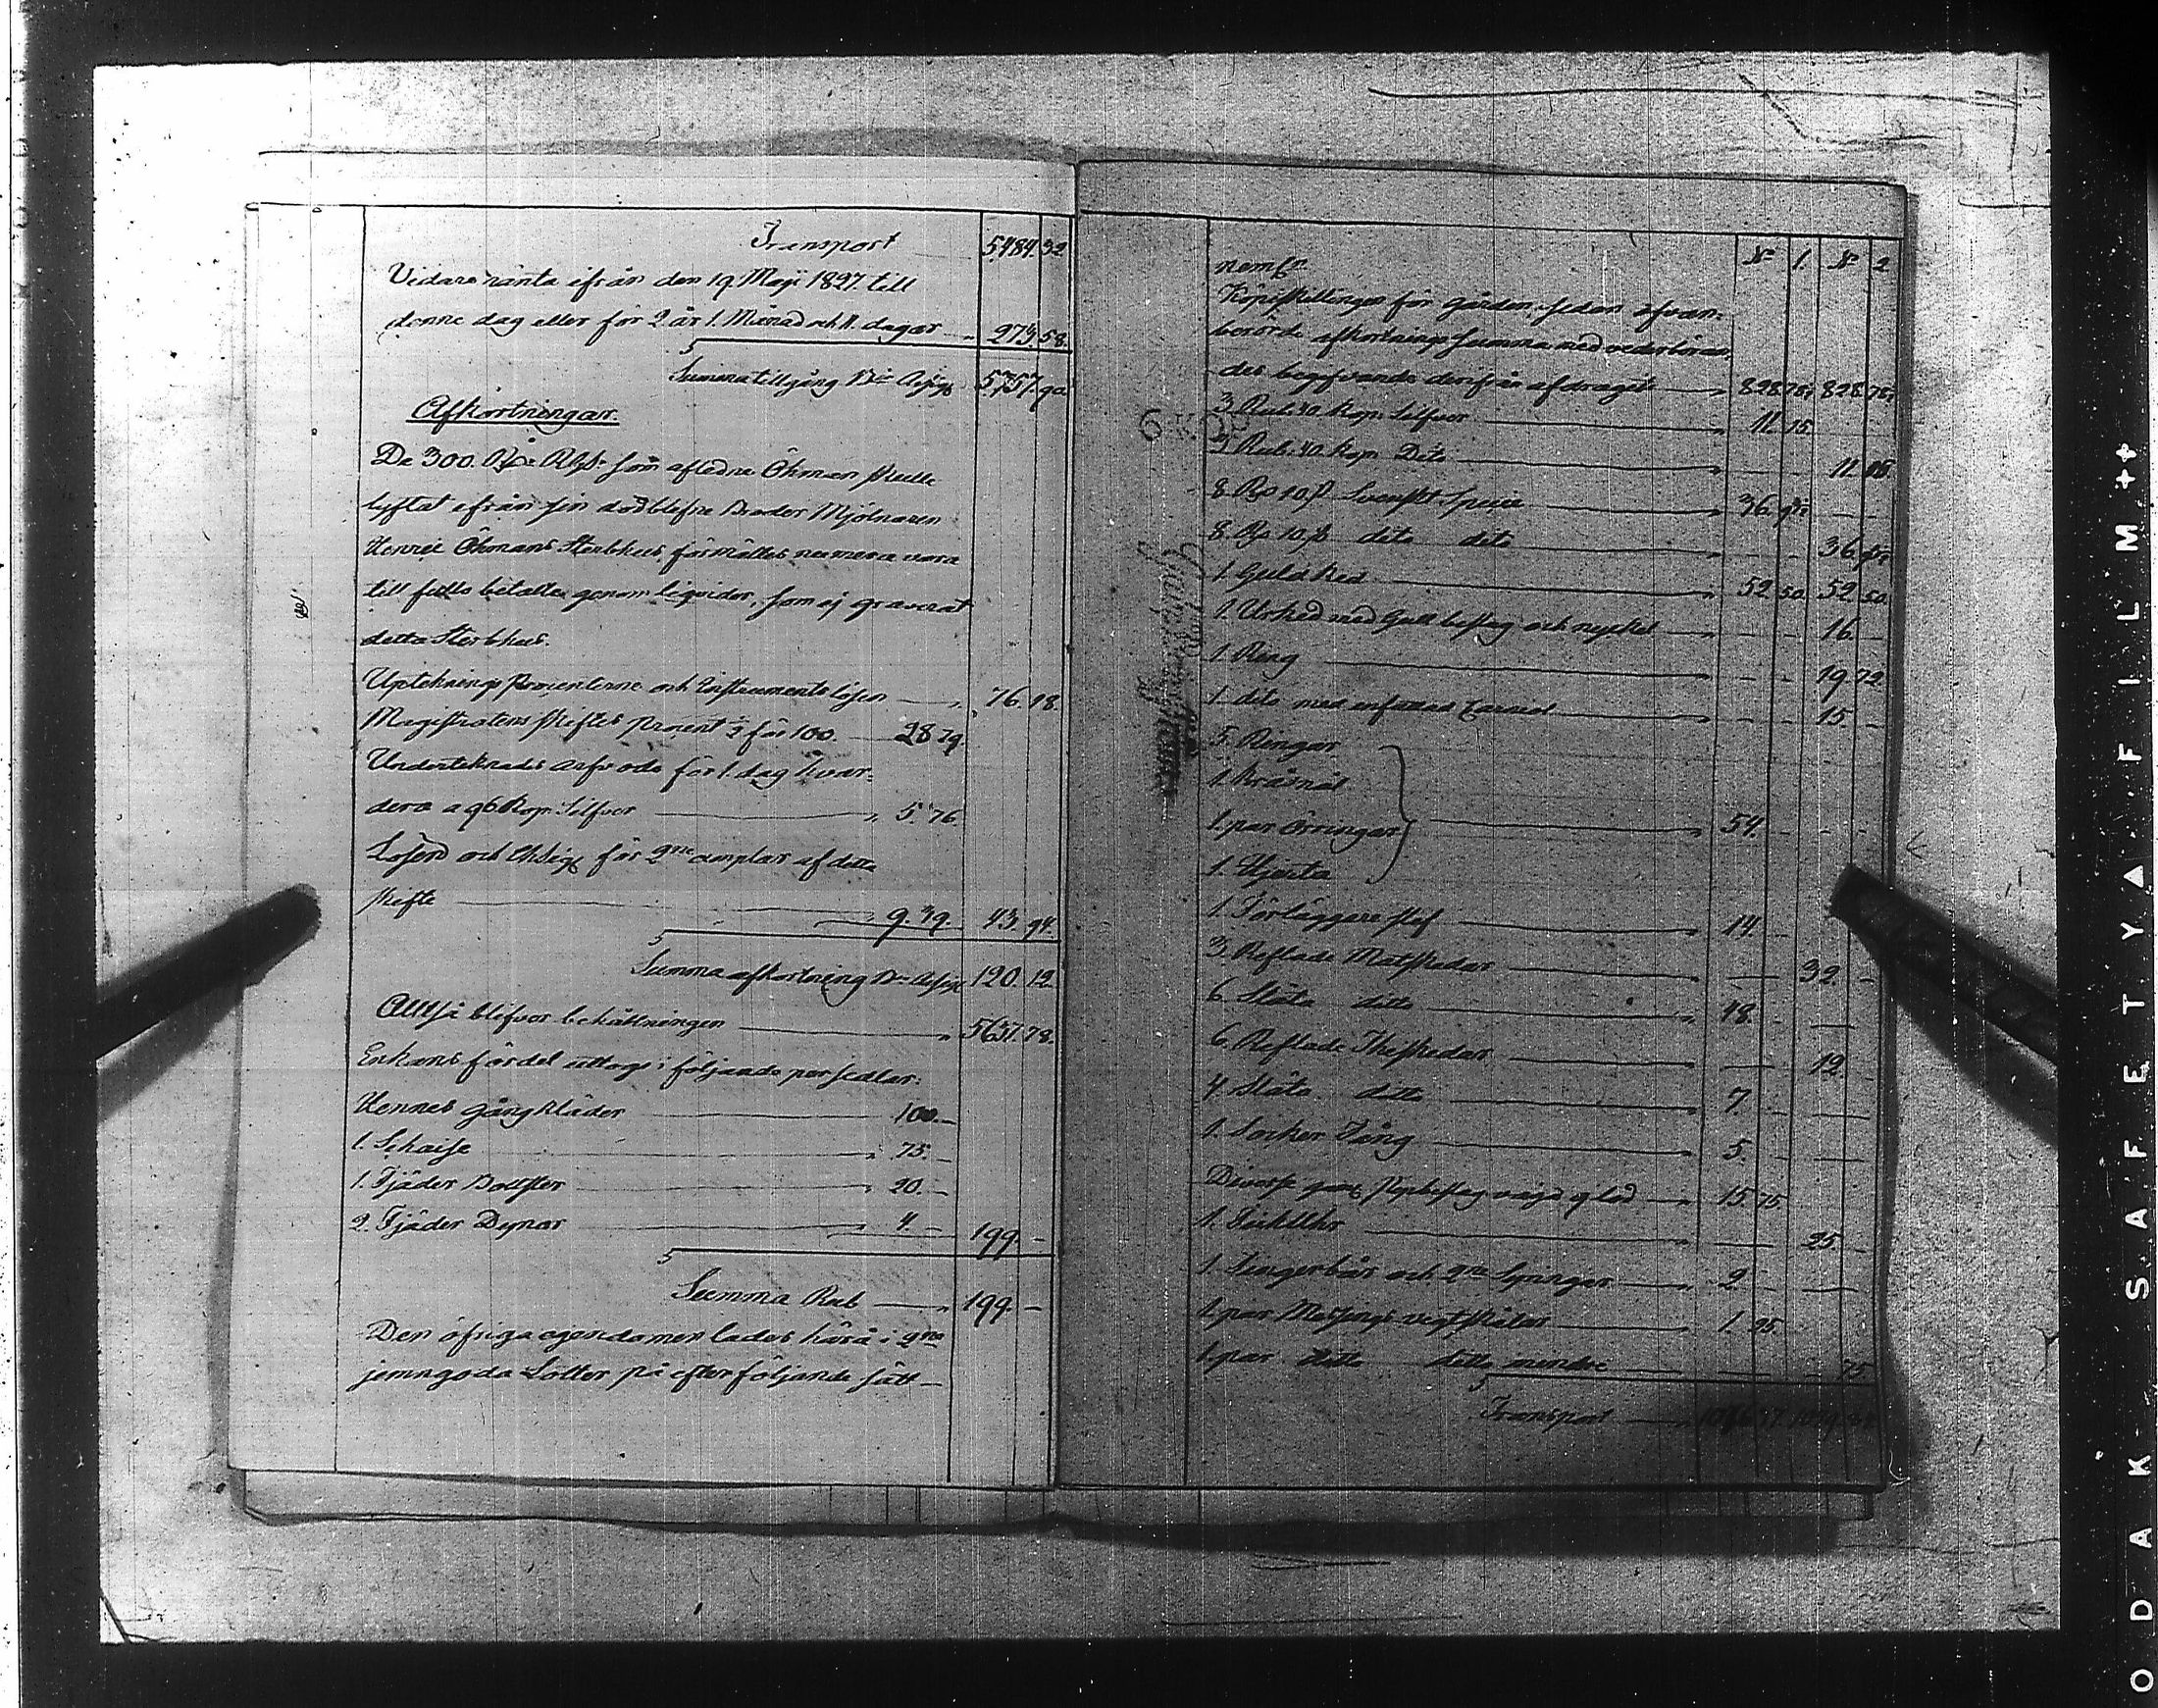 Transport 5,484. 32
Vidare ränta ifrån den 19. Maji 1827. till
denne dag eller för 2 år 1. Månad och 11. dagar „ 273. 58.
Summa tillgång B:co Assig: 5,757. 90.
Afkortningar.
De 300. R:dr Rgs: som aflidne Öhman skulle
lyftat ifrån sin dödblefne Broder Mjölnaren
Henric Öhmans Sterbhus, förmältes numera vara
till fullo betalta genom liqvider, som ej graverat
detta Sterbhus.
Upteknings procenterne och Instruments lösen „ 76. 18.
Magistratens skiftes procent ½ för 100. 28 79.
Underteknads arfvode för 1. dag hvar-
dera a 96 Kop: Silfver „ 5. 76.
Lösen och Chsig: för 2ne exemplar af detta
skifte „ 9. 39. 43. 94.
Summa afkortning B:co Assig: 120. 12.
Alltså blifver behållningen „ 5637. 78.
Enkans fördel uttogs i följande persedlar:
Hennes gångkläder 100. —
1. Schaise „ 75. —
1. Fjäder Bolster „ 20. —
2. Fjäder Dynor „ 4. — 199. —
Summa Rub „ 199. —
Den öfriga egendomen lades härå i 2ne
jemngoda Lotter på efterföljande sätt —
N:o 1. N:o 2
neml:n
Köpeskillingen för gården, sedan ofvan-
berörde afkortnings summa med vederböran-
des begifvande derifrån afdragits 828. 78½ 828. 78½
3 Rub: 40 Kop: Silfver „ 11. 15.
3 Rub: 40 Kop: Dito „ 11. 15.
8 R:dr 10 ß Svenskt Specie „ 36. 9½ —
8 R:dr 10 ß dito dito 36. 9½
1. Guld Ked „ 52 50. 52 50.
1. Urked med Gull beslag och nyckel 16. —
1. Ring „ 19 72
1. dito med infattad Carniol „ 15. —
5. Ringar
1. Kråsnål
1. par Örringar „ 54.
1. Hjerta
1. Förläggare slef „ 14.
3. Reflade Matskedar 32. —
6. Släta ditto „ 48. —
6. Reflade Theskedar — 12
4. Släta ditto „ 7. —
1. Socker Tång „ 5. —
Diverse par beslag vägd 9 lod „ 15. 75.
1. Fickuhr — 25. —
1. Fingerbår och 2ne Syringar „ 2 —
1. par Messings vegtskålar „ 1. 25.
1. par ditto ditto mindre „ 75.
Transport